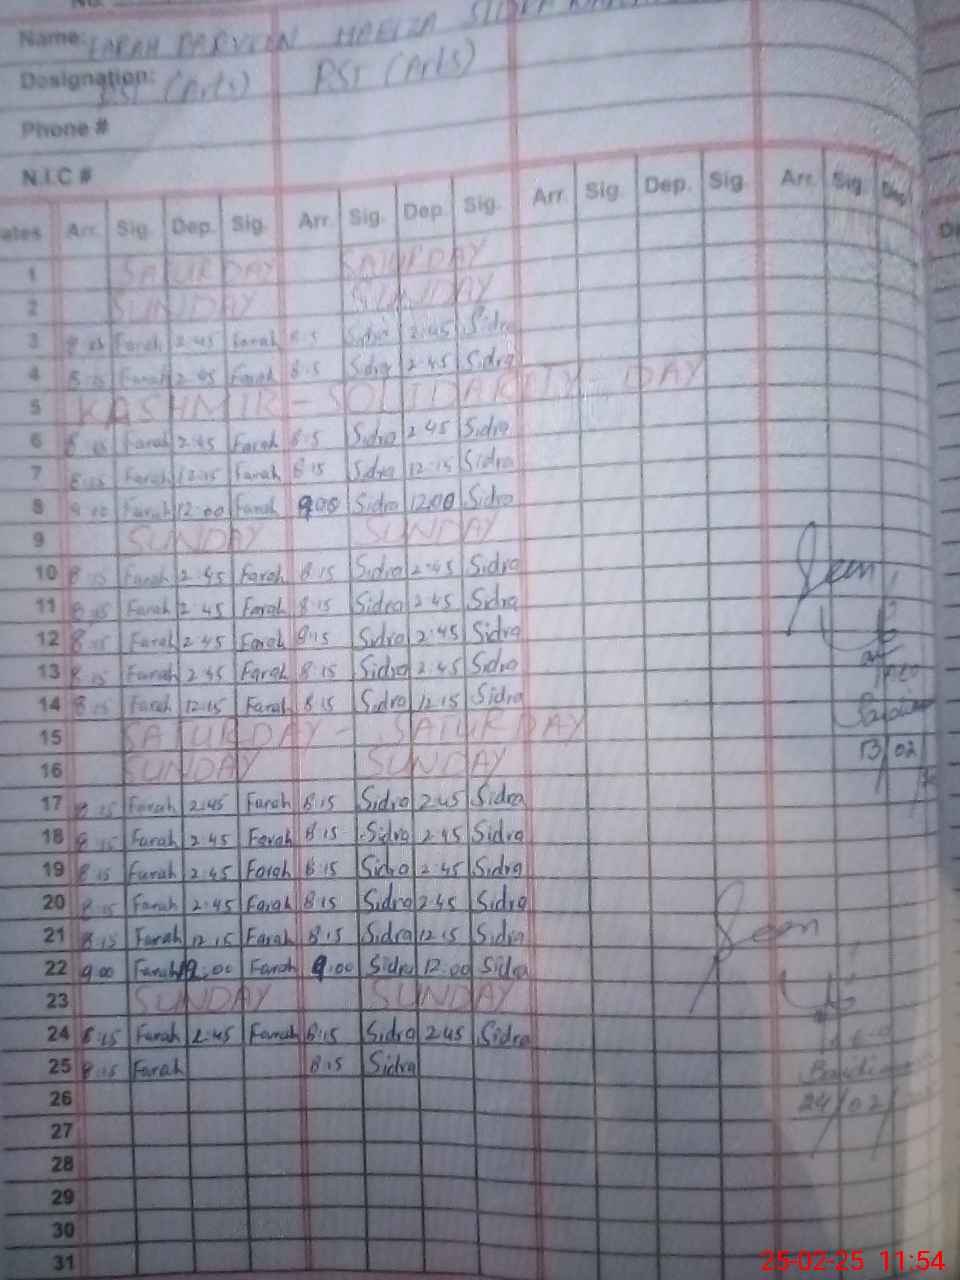 No.
Name: FARAH PARVEEN HAFIZA SIDRA
Designation: PST (Arts) PST (Arts)
Phone #
N.I.C #
ates Arr. Sig. Dep. Sig. Arr. Sig. Dep. Sig. Arr. Sig. Dep. Sig. Arr. Sig. Dep.
1 SATURDAY SATURDAY
2 SUNDAY SUNDAY
3 8:15 Farah 2:45 Farah 8:15 Sidra 2:45 Sidra
4 8:15 Farah 2:45 Farah 8:15 Sidra 2:45 Sidra
5 KASHMIR - SOLIDARITY DAY
6 8:15 Farah 2:45 Farah 8:15 Sidra 2:45 Sidra
7 8:15 Farah 12:15 Farah 8:15 Sidra 12:15 Sidra
8 9:00 Farah 12:00 Farah 9:00 Sidra 12:00 Sidra
9 SUNDAY SUNDAY
10 8:15 Farah 2:45 Farah 8:15 Sidra 2:45 Sidra
11 8:15 Farah 2:45 Farah 8:15 Sidra 2:45 Sidra
12 8:15 Farah 2:45 Farah 8:15 Sidra 2:45 Sidra
13 8:15 Farah 2:45 Farah 8:15 Sidra 2:45 Sidra
14 8:15 Farah 12:15 Farah 8:15 Sidra 12:15 Sidra
15 SATURDAY - SATURDAY
16 SUNDAY SUNDAY
17 8:15 Farah 2:45 Farah 8:15 Sidra 2:45 Sidra
18 8:15 Farah 2:45 Farah 8:15 Sidra 2:45 Sidra
19 8:15 Farah 2:45 Farah 8:15 Sidra 2:45 Sidra
20 8:15 Farah 2:45 Farah 8:15 Sidra 2:45 Sidra
21 8:15 Farah 12:15 Farah 8:15 Sidra 12:15 Sidra
22 9:00 Farah 12:00 Farah 9:00 Sidra 12:00 Sidra
23 SUNDAY SUNDAY
24 8:15 Farah 2:45 Farah 8:15 Sidra 2:45 Sidra
25 8:15 Farah 8:15 Sidra
26
27
28
29
30
31
Seen
13/02
Seen
24/02/
25-02-25 11:54